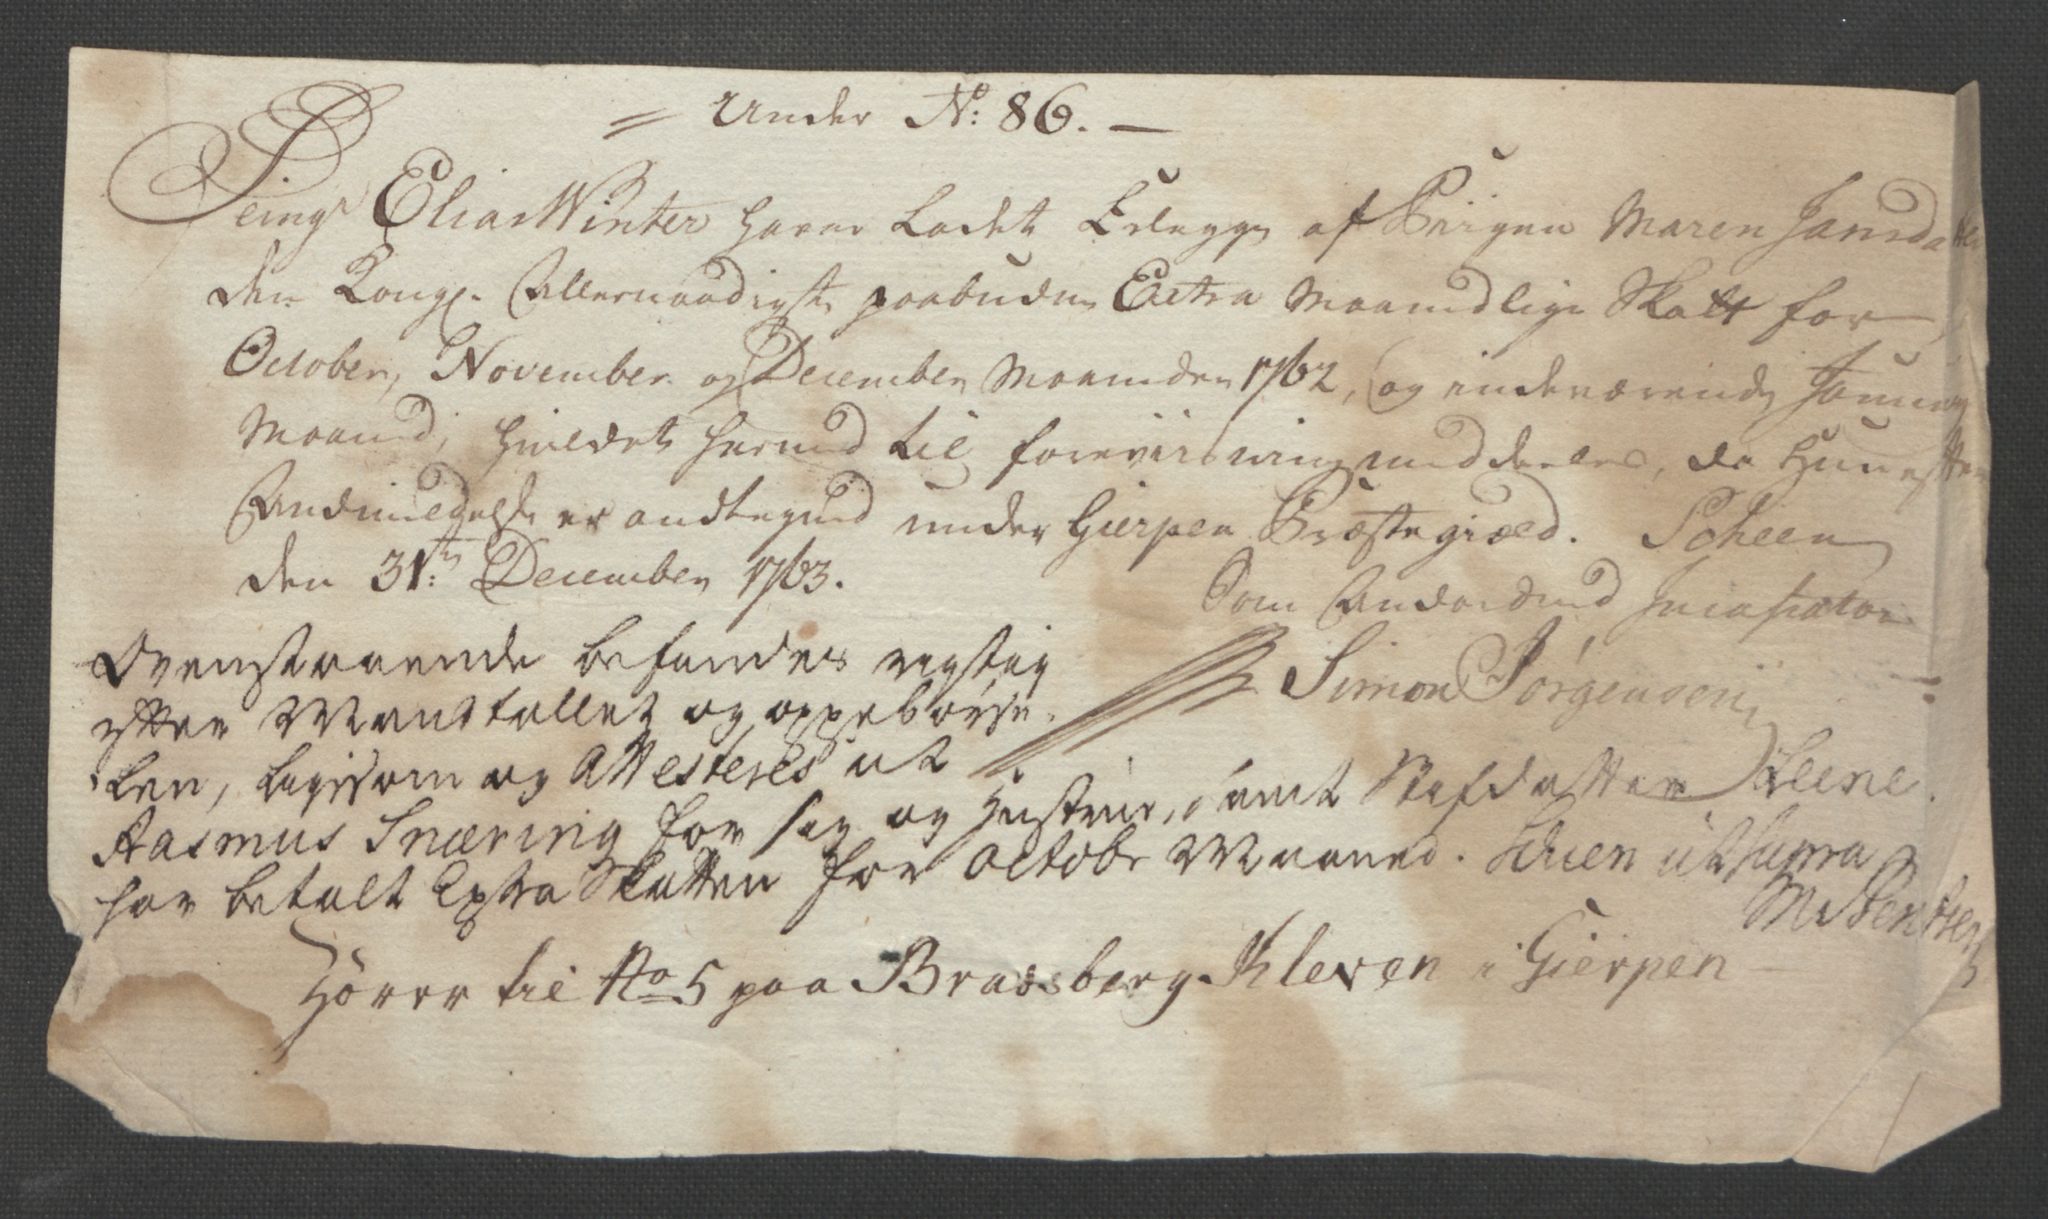 = Under No: 86. —
Seingr Elias Winter haver Ladet Erlegge af Piigen Maren Jansdatter
den Kongl. Allernaadigste paabudne Extra Maanedlige Skatt for
October, November og December Maaneder 1762, og indeværende Januarij
Maaned, hvilcket hermed til foreviisning meddeeles, da Hun efter
Andmeldelse er andtegned under Gierpen Præstegiæld. Scheen
den 31te: December 1763.
Som Andordned Incassator
Simon Jørgensen
Ovenstaaende befindes rigtig
efter Mandtallet og oppebørse-
len, ligesom og Attesteres at
Rasmus Snæring for sig og Hustrue, samt Stifdatter Leene
har betalt Extra Skatten for octobr Maaned. Schien ut supra
Hörer til No 5 paa Bradsberg-Kleven i Gierpen